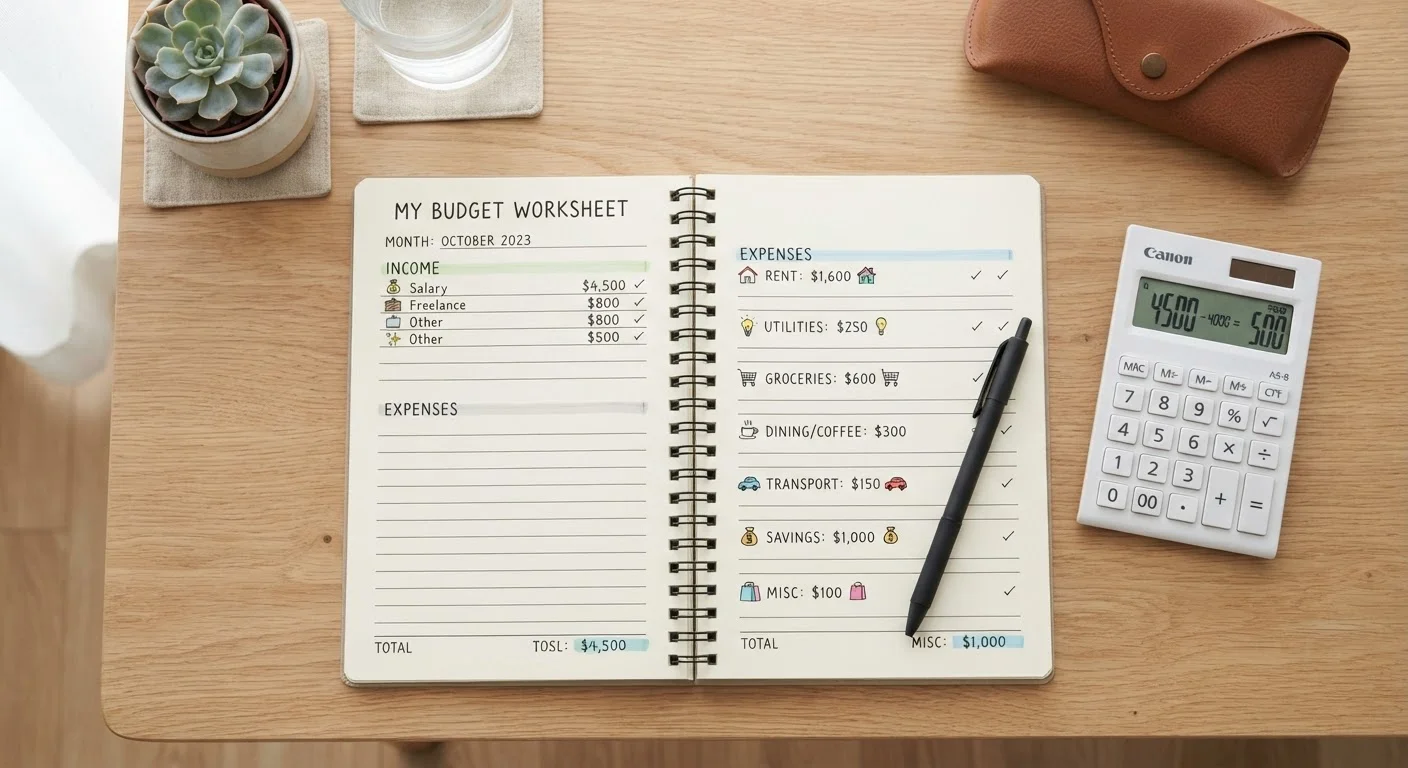 MY BUDGET WORKSHEET
MONTH: OCTOBER 2023
INCOME
Salary $4,500 ✓
Freelance $800 ✓
Other $800 ✓
Other $500 ✓
EXPENSES
TOTAL TOSL: $4,500
EXPENSES
RENT: $1,600 ✓ ✓
UTILITIES: $250 ✓ ✓
GROCERIES: $600 ✓
DINING/COFFEE: $300 ✓
TRANSPORT: $150 ✓
SAVINGS: $1,000 ✓
MISC: $100 ✓
TOTAL MISC: $1,000
Canon
4500 = 500
MAC
7 8 9 % √
4 5 6 × ÷
1 2 3 + =
0 00 .